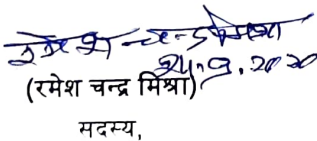 रमेश चन्द्र मिश्रा
9.2020
(रमेश चन्द्र मिश्रा)
सदस्य,